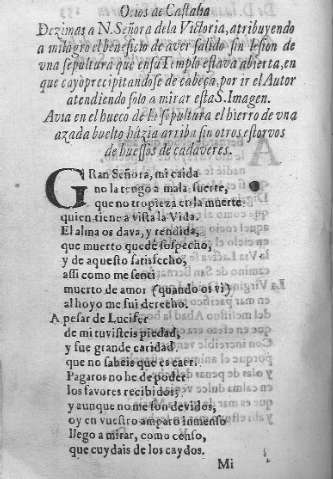 Ocios de Castalia
Dezimas a N. Señora de la Victoria, atribuyendo
a milagro el beneficio de aver salido sin lesion de
vna sepultura que en su Templo estava abierta, en
que cayò precipitandose de cabeça, por ir el Autor
atendiendo solo a mirar esta S. Imagen.
Avia en el hueco de la sepultura el hierro de vna
azada buelto hàzia arriba sin otros estorvos
de huessos de cadaveres.
GRan Señora, mi caida
no la tengo a mala suerte,
que no tropieza en la muerte
quien tiene a vista la Vida.
El alma os dava, y rendida,
que muerto quedè sospecho,
y de aquesto satisfecho,
assi como me senti
muerto de amor (quando os vi)
al hoyo me fui derecho.
A pesar de Lucifer
de mi tuvisteis piedad,
y fue grande caridad
que no sabeis que es caer.
Pagaros no he de poder
los favores recibidos,
y aunque no me son devidos,
oy en vuestro amparo inmenso
llego a mirar, como censo,
que cuydais de los caydos.
Mi